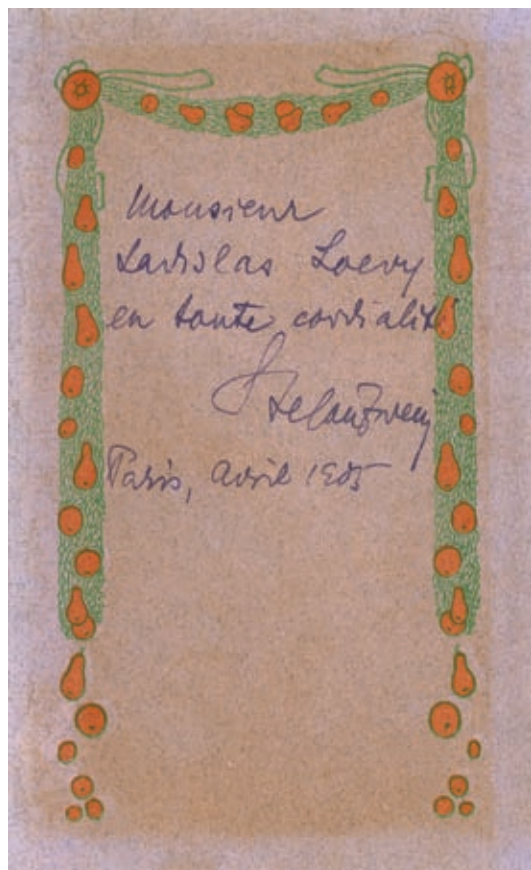 Monsieur
Ladislas Loevy
en toute cordialité
Stefan Zweig
Paris, Avril 1905